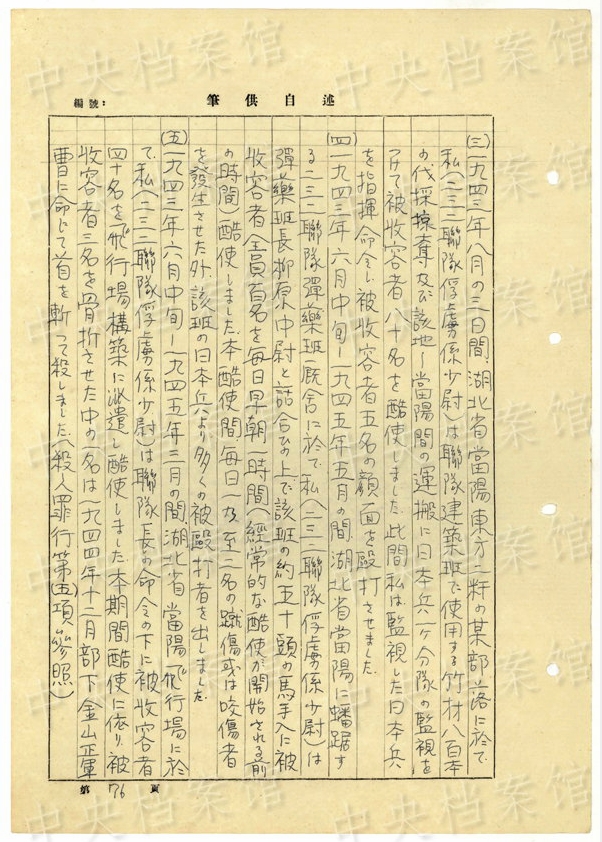 編號：
筆供自述
(三)一九四三年八月の三日間、湖北省當陽東方二粁の某部落に於て
私(二三二聯隊俘虜係少尉)は聯隊建築班で使用する竹材八百本
の伐採掠奪及び該地ー當陽間の運搬に日本兵一ケ分隊の監視を
つけて被收容者八十名を酷使しました。此間私は監視した日本兵
を指揮命令し被收容者五名の顔面を毆打させました。
(四)一九四三年六月中旬ー一九四五年五月の間、湖北省當陽に蟠踞す
る二三二聯隊彈藥班厩舍に於て、私(二三二聯隊俘虜係少尉)は
彈藥班長柳原中尉と話合ひの上で該班の約五十頭の馬手入に被
收容者全員百名を毎日早朝一時間(經常的な酷使が開始される前
の時間)酷使しました。本酷使間毎日一名乃至二名の蹴傷或は咬傷者
を發生させた外、該班の日本兵より多くの被毆打者を出しました。
(五)一九四三年六月中旬ー一九四五年三月の間、湖北省當陽飛行場に於
て、私(二三二聯隊俘虜係少尉)は聯隊長の命令の下に被收容者
四十名を飛行場構築に派遣し酷使しました。本期間酷使に依り、被
收容者三名を骨折させた中の一名は一九四四年十二月部下金山正軍
曹に命じて首を斬って殺しました。(殺人罪行第(五)項參照)
第 76 頁
中央档案馆